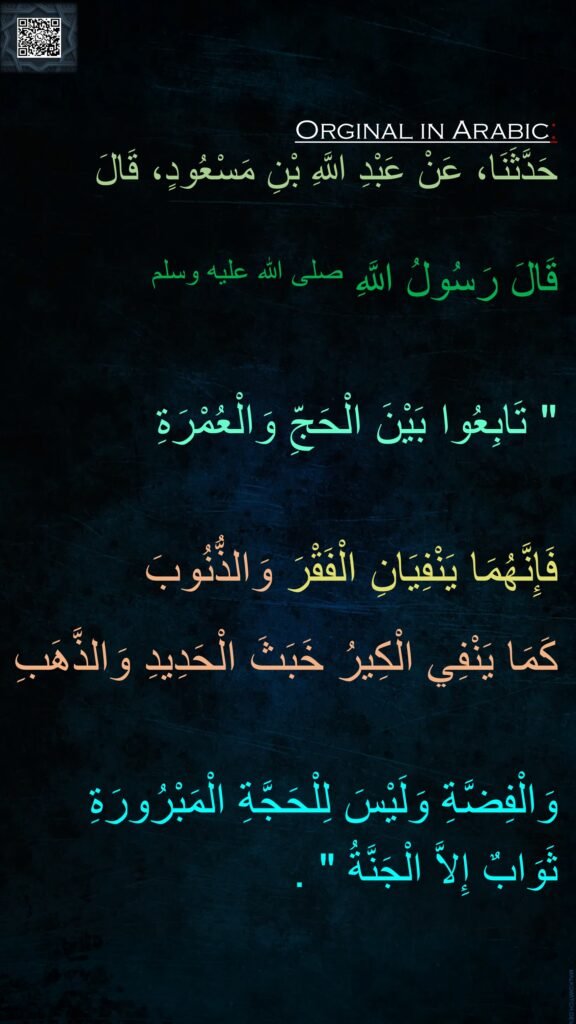 Orginal in Arabic:
حَدَّثَنَا، عَنْ عَبْدِ اللَّهِ بْنِ مَسْعُودٍ، قَالَ
قَالَ رَسُولُ اللَّهِ صلى الله عليه وسلم
" تَابِعُوا بَيْنَ الْحَجِّ وَالْعُمْرَةِ
فَإِنَّهُمَا يَنْفِيَانِ الْفَقْرَ وَالذُّنُوبَ
كَمَا يَنْفِي الْكِيرُ خَبَثَ الْحَدِيدِ وَالذَّهَبِ
وَالْفِضَّةِ وَلَيْسَ لِلْحَجَّةِ الْمَبْرُورَةِ
ثَوَابٌ إِلاَّ الْجَنَّةُ " .